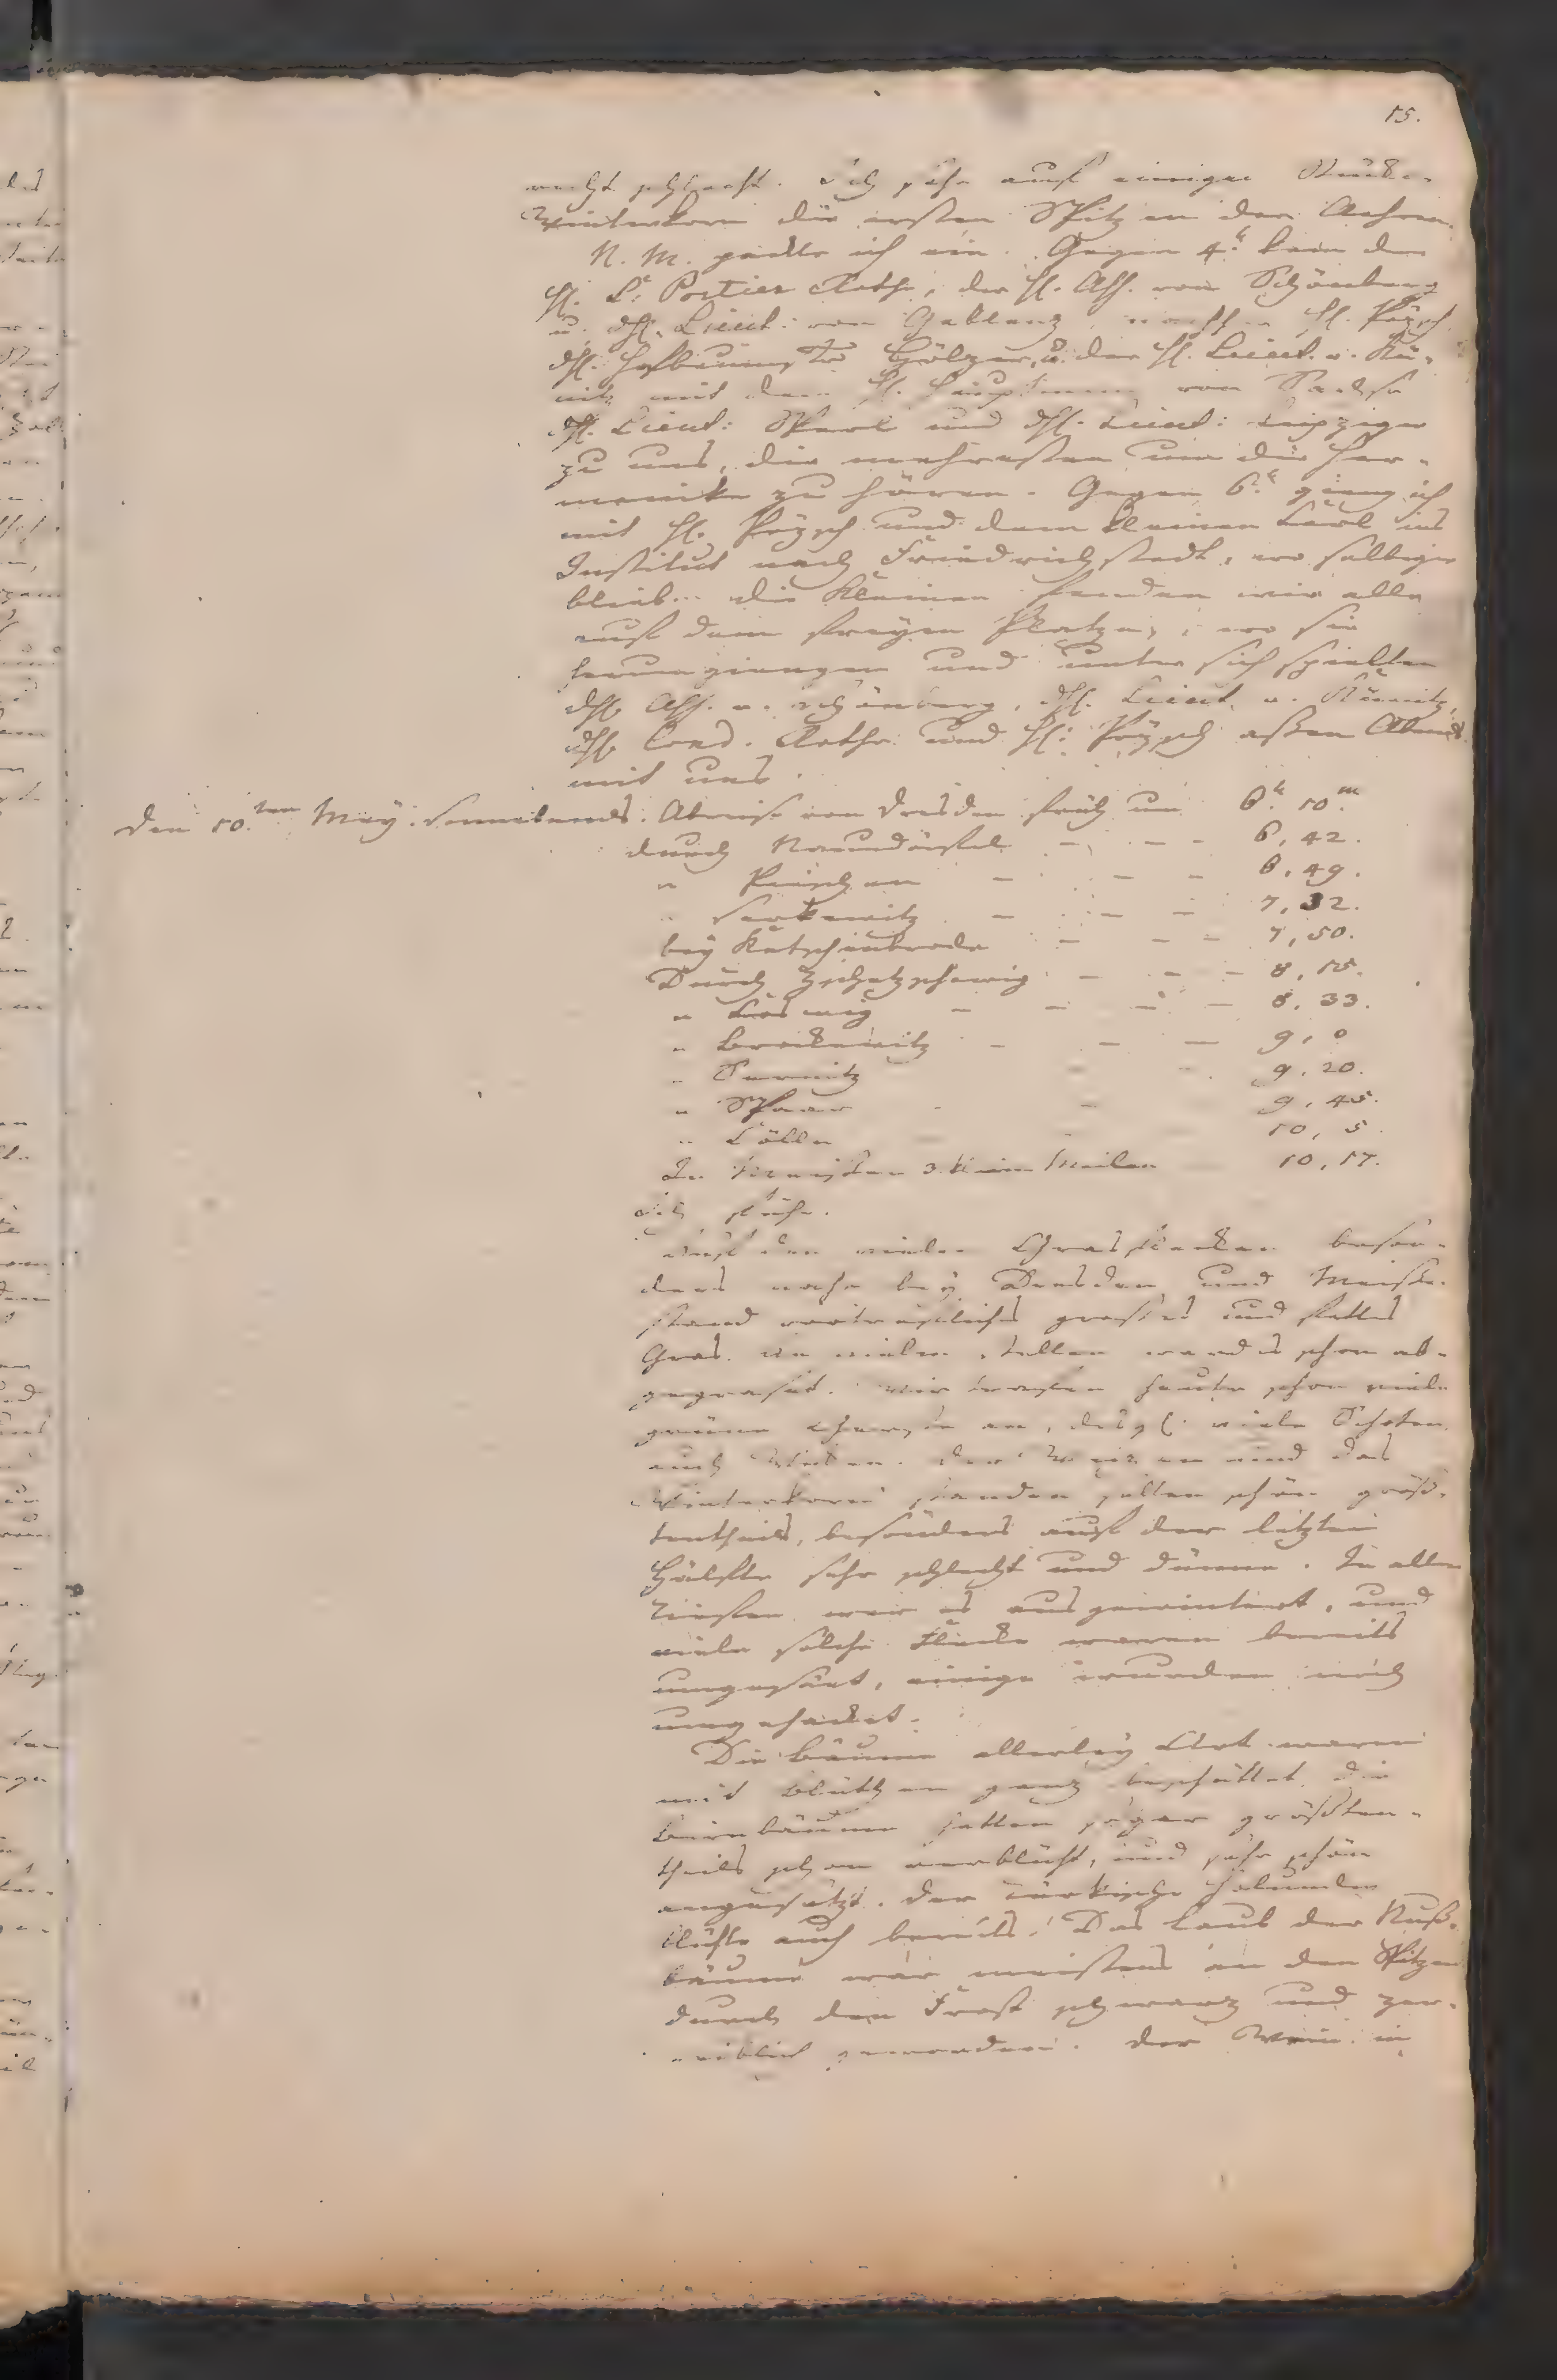 15.
nacht gebracht. Ich sahe auf einigen Stücken
Winterkorn die ersten Spitzen der Aehren.
N. M. packte ich ein. Gegen 4.h kam der
H. L. Portier Rothe, der H. Ass. von Schönberg
u. dH. Lieut: von Gablenz, H. Pözsch
dH. Hölzer, u. der H. Lieut. v. Kü-
nitz mit dem H. Hauptmann von
dH. Lieut: und dH. Lieut: Leipziger
zu uns, die mehresten um die Har-
monika zu hören. Gegen 6.h gieng ich
mit H. Pözsch und dem kleinen Carl ins
Institut nach Friedrichstadt, wo selbiger
blieb. die Kleinen fanden wir alle
auf dem freyen Platze, wo sie
herumgiengen und unter sich spielten
dH. Ass. v. Schönberg, dH. Lieut. v. Künitz,
dH. Cond. Rothe und H. Pözsch aßen Abends
mit uns.
den 10.ten May. Sonnabends. Abreise von Dresden früh um 6.h 10.m
durch Naundörfel - - - 6, 42.
" Pieschen - - - 6, 49.
" Serkewitz - - - 7, 32.
bey Kötschenbroda - - - 7, 50.
Durch Zschetzschewig - - - 8, 15.
" Coswig - - - - 8, 33.
" Brockewitz - - - 9, 0
" Sernitz - - 9, 20.
" Spaar - - 9, 45.
" Cölln - - 10, 5.
In Meissen 3. kleine Meilen 10, 17.
Ich sahe.
Auf den vielen Grasflecken beson-
ders nahe bey Dresden und Meissen
stand vortrefliches grosses und fettes
Gras. An vielen Stellen ward es schon ab-
gegraset. Wir trafen heute schon viele
grüne Gerste an, desgl. viele Schoten,
auch Wicken. Der Weizen und das
Winterkorn standen selten schön größ-
tentheils, besonders auf der letzten
Hälfte sehr schlecht und dünne. In allen
Tiefen war es ausgewintert, und
viele solche Flecke waren bereits
umgesäet, einige wurden noch
umgehackt.
Die Bäume allerley Art waren
mit Blüthen ganz beschüttet, die
Birnbäume hatten sogar größten-
theils schon verblüht, und sehr schön
angesetzt. Der türkische Holunder
blühte auch bereits. Das Laub der Nuß-
bäume war meistens an den Spitzen
durch den Frost schwarz und zer-
reiblich geworden. Der Wein in